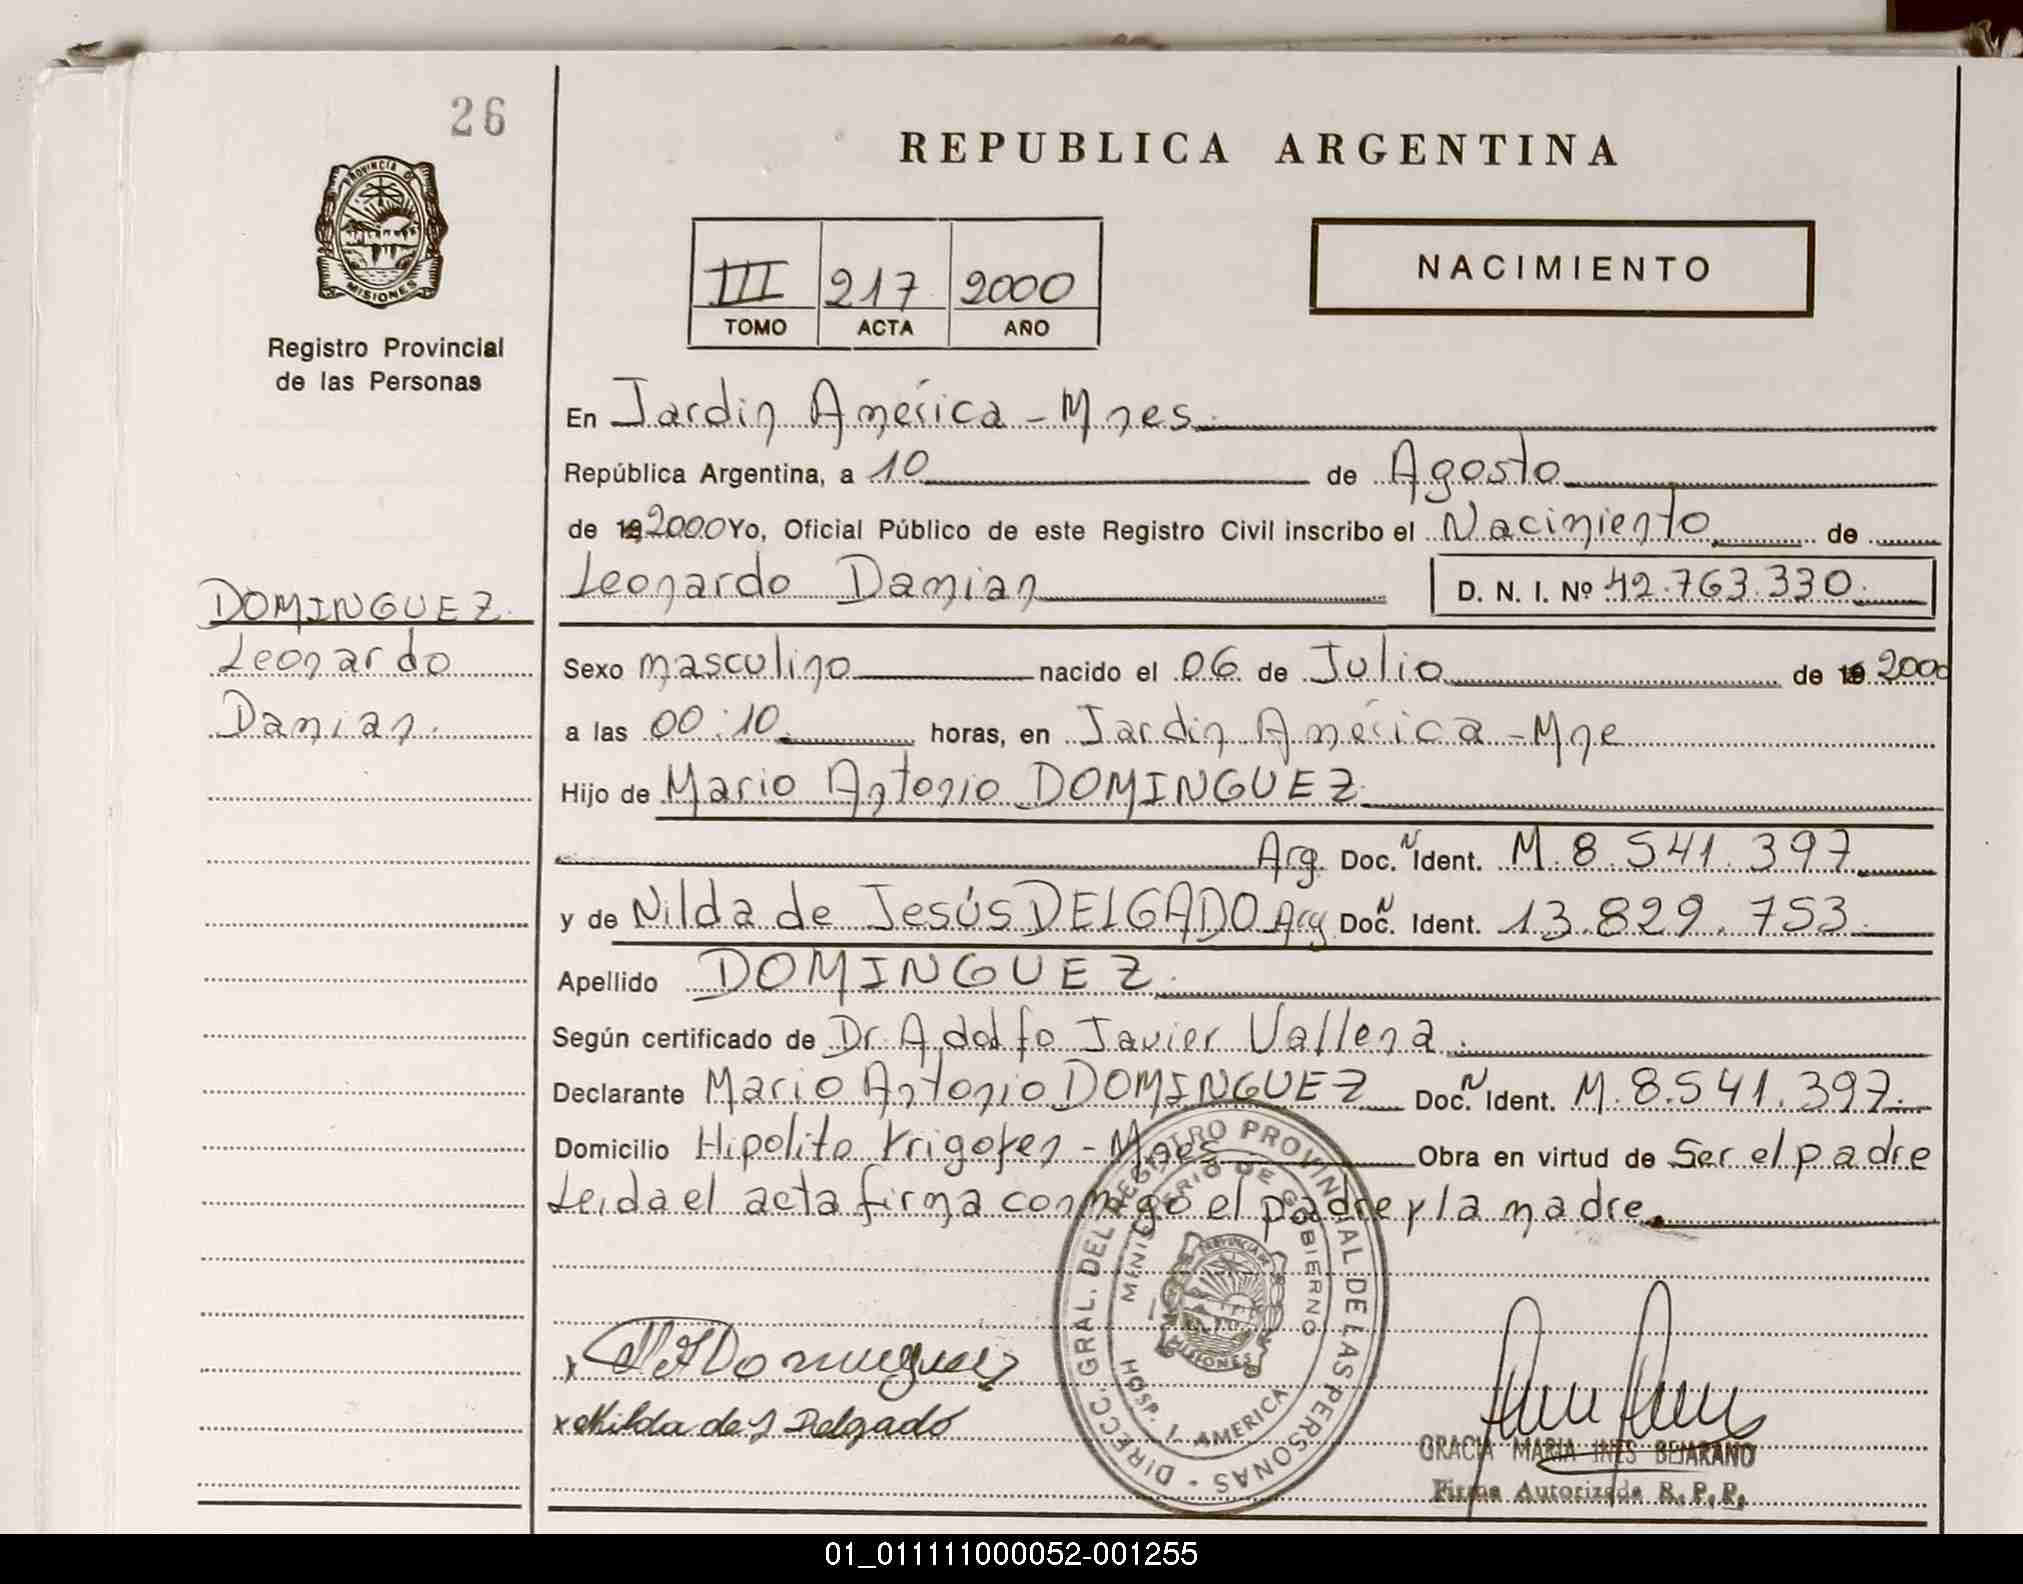 26
REPUBLICA ARGENTINA
PROVINCIA D
MISIONES
Registro Provincial
de las Personas
III 217 2000
TOMO ACTA AÑO
NACIMIENTO
En Jardin América - Mnes.
República Argentina, a 10 de Agosto
de 19 2000 Yo, Oficial Público de este Registro Civil inscribo el Nacimiento de
Leonardo Damian D. N. I. Nº 42.763.330.
DOMINGUEZ.
Leonardo
Damian.
Sexo masculino nacido el 06 de Julio de 19 2000
a las 00:10 horas, en Jardin América - Mne
Hijo de Mario Antonio DOMINGUEZ.
Arg. Doc. N Ident. M. 8.541.397
y de Nilda de Jesús DELGADO Arg Doc. N Ident. 13.829.753.
Apellido DOMINGUEZ.
Según certificado de Dr. Adolfo Javier Vallena.
Declarante Mario Antonio DOMINGUEZ Doc. N Ident. M. 8.541.397.
Domicilio Hipolito Yrigoyen - Mnes Obra en virtud de Ser el padre
Leida el acta firma conmigo el padre y la madre.
DIRECC. GRAL. DEL REGISTRO PROVINCIAL DE LAS PERSONAS -
MINISTERIO DE GOBIERNO
HOSP. J. AMERICA
PROVINCIA DE
MISIONES
x Dominguez
x Nilda de J Delgado
GRACIA MARIA INES BEJARANO
Firma Autorizada R.P.P.
01_011111000052-001255